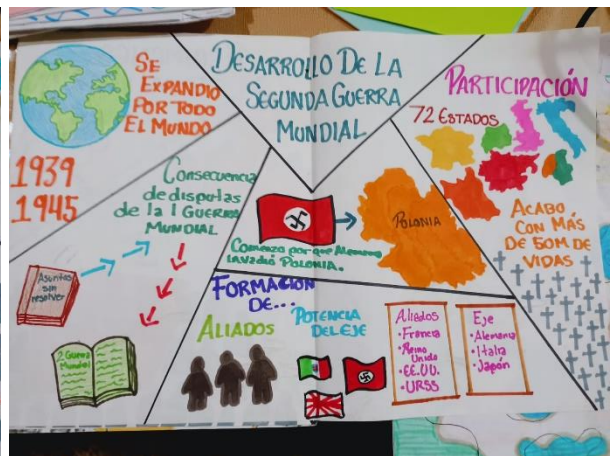 SE
EXPANDIO
POR TODO
EL MUNDO
1939
1945
DESARROLLO DE LA
SEGUNDA GUERRA
MUNDIAL
PARTICIPACIÓN
72 ESTADOS
ACABO
CON MÁS
DE 50M DE
VIDAS
Consecuencia
de disputas
de la I GUERRA
MUNDIAL
Asuntos
sin
resolver
2 Guerra
Mundial
POLONIA
Comenzo por que Alemania
invadió POLONIA.
FORMACION
DE...
ALIADOS
POTENCIA
DEL EJE
Aliados
• Francia
• Reino
Unido
• EE.UU.
• URSS
Eje
• Alemania
• Italia
• Japón